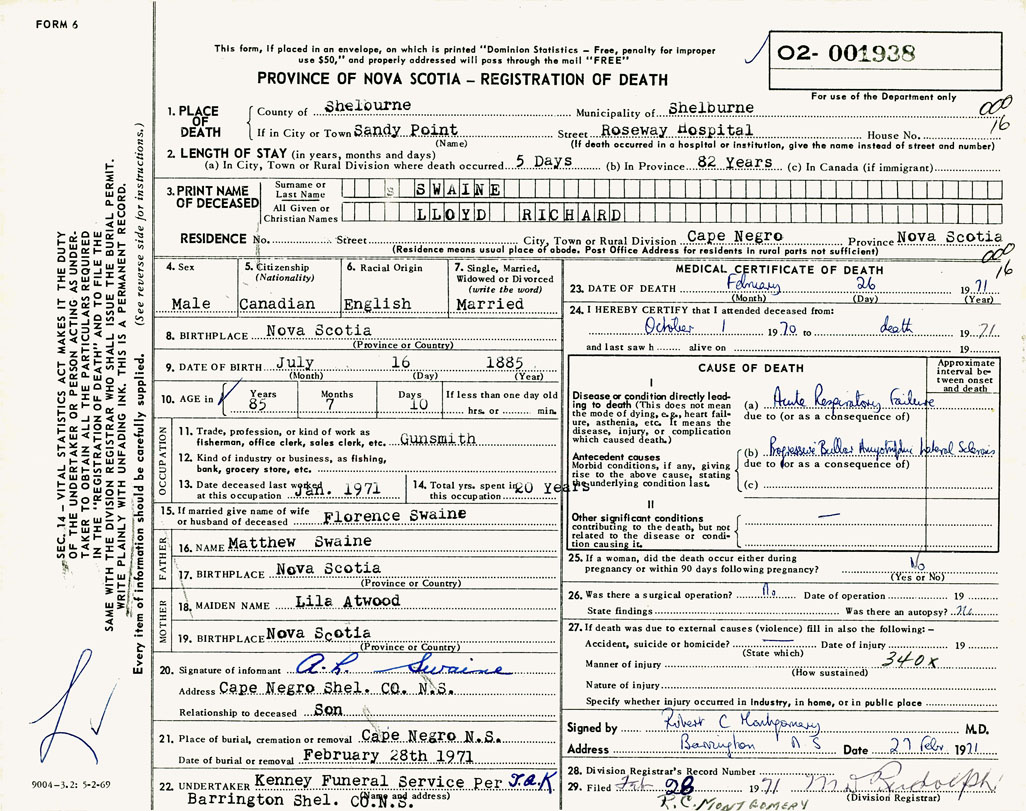 FORM 6
This form, if placed in an envelope, on which is printed "Dominion Statistics – Free, penalty for improper
use $50," and properly addressed will pass through the mail "FREE"
O2- 001938
PROVINCE OF NOVA SCOTIA – REGISTRATION OF DEATH
For use of the Department only
000
16
1. PLACE OF DEATH
County of Shelburne Municipality of Shelburne
If in City or Town Sandy Point Street Roseway Hospital House No.
(Name) (If death occurred in a hospital or institution, give the name instead of street and number)
2. LENGTH OF STAY (in years, months and days)
(a) In City, Town or Rural Division where death occurred 5 Days (b) In Province 82 Years (c) In Canada (if immigrant)
3. PRINT NAME OF DECEASED
Surname or Last Name SWAINE
All Given or Christian Names LLOYD RICHARD
RESIDENCE No. Street City, Town or Rural Division Cape Negro Province Nova Scotia
(Residence means usual place of abode. Post Office Address for residents in rural parts not sufficient)
000
16
4. Sex
Male
5. Citizenship
(Nationality)
Canadian
6. Racial Origin
English
7. Single, Married,
Widowed or Divorced
(write the word)
Married
8. BIRTHPLACE Nova Scotia
(Province or Country)
9. DATE OF BIRTH July 16 1885
(Month) (Day) (Year)
10. AGE in Years Months Days If less than one day old
85 7 10 hrs. or min.
OCCUPATION
11. Trade, profession, or kind of work as
fisherman, office clerk, sales clerk, etc. Gunsmith
12. Kind of industry or business, as fishing,
bank, grocery store, etc.
13. Date deceased last worked
at this occupation Jan. 1971
14. Total yrs. spent in
this occupation 20 Years
15. If married give name of wife
or husband of deceased Florence Swaine
FATHER
16. NAME Matthew Swaine
17. BIRTHPLACE Nova Scotia
(Province or Country)
MOTHER
18. MAIDEN NAME Lila Atwood
19. BIRTHPLACE Nova Scotia
(Province or Country)
20. Signature of informant A.L. Swaine
Address Cape Negro Shel. CO. N.S.
Relationship to deceased Son
21. Place of burial, cremation or removal Cape Negro N.S.
Date of burial or removal February 28th 1971
22. UNDERTAKER Kenney Funeral Service Per J.A.K
(Name and address)
Barrington Shel. CO.N.S.
MEDICAL CERTIFICATE OF DEATH
23. DATE OF DEATH February 26 1971
(Month) (Day) (Year)
24. I HEREBY CERTIFY that I attended deceased from:
October 1 1970 to death 1971
and last saw h alive on 19
CAUSE OF DEATH
Approximate
interval be-
tween onset
and death
I
Disease or condition directly lead-
ing to death (This does not mean
the mode of dying, e.g., heart fail-
ure, asthenia, etc. It means the
disease, injury, or complication
which caused death.)
(a) Acute Respiratory Failure
due to (or as a consequence of)
Antecedent causes
Morbid conditions, if any, giving
rise to the above cause, stating
the underlying condition last.
(b) Progressive Bulbar Amyotrophic Lateral Sclerosis
due to (or as a consequence of)
(c)
II
Other significant conditions
contributing to the death, but not
related to the disease or condi-
tion causing it.
—
25. If a woman, did the death occur either during
pregnancy or within 90 days following pregnancy? No
(Yes or No)
26. Was there a surgical operation? No Date of operation 19
State findings Was there an autopsy? No
27. If death was due to external causes (violence) fill in also the following: –
Accident, suicide or homicide? — Date of injury 19
(State which)
Manner of injury 340X
(How sustained)
Nature of injury
Specify whether injury occurred in industry, in home, or in public place
Signed by Robert C Montgomery M.D.
Address Barrington N S Date 27 Febr. 1971
28. Division Registrar's Record Number
29. Filed Feb 28 1971 M D Rudolph
(Division Registrar)
R.C. MONTGOMERY
SEC. 14 – VITAL STATISTICS ACT MAKES IT THE DUTY
OF THE UNDERTAKER OR PERSON ACTING AS UNDER-
TAKER TO OBTAIN ALL THE PARTICULARS REQUIRED
IN THE "REGISTRATION OF DEATH" AND TO FILE THE
SAME WITH THE DIVISION REGISTRAR WHO SHALL ISSUE THE BURIAL PERMIT.
WRITE PLAINLY WITH UNFADING INK. THIS IS A PERMANENT RECORD.
Every item of information should be carefully supplied. (See reverse side for instructions.)
9004-3.2: 5-2-69